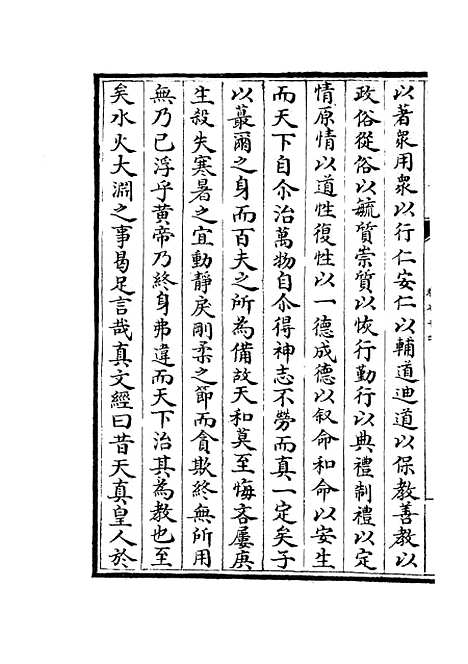 以著衆用衆以行仁安仁以輔道迪道以保教善教以
政俗從俗以毓質崇質以恢行勤行以典禮制禮以定
情原情以道性復性以一德成德以叙命和命以安生
而天下自尒治萬物自尒得神志不勞而真一定矣子
以蕞爾之身而百夫之所為備故天和莫至悔吝屢庚
生殺失寒暑之宜動靜戾剛柔之節而貪欺終無所用
無乃已浮乎黄帝乃終身弗違而天下治其為教也至
矣水火大淵之事曷足言哉真文經曰昔天真皇人於